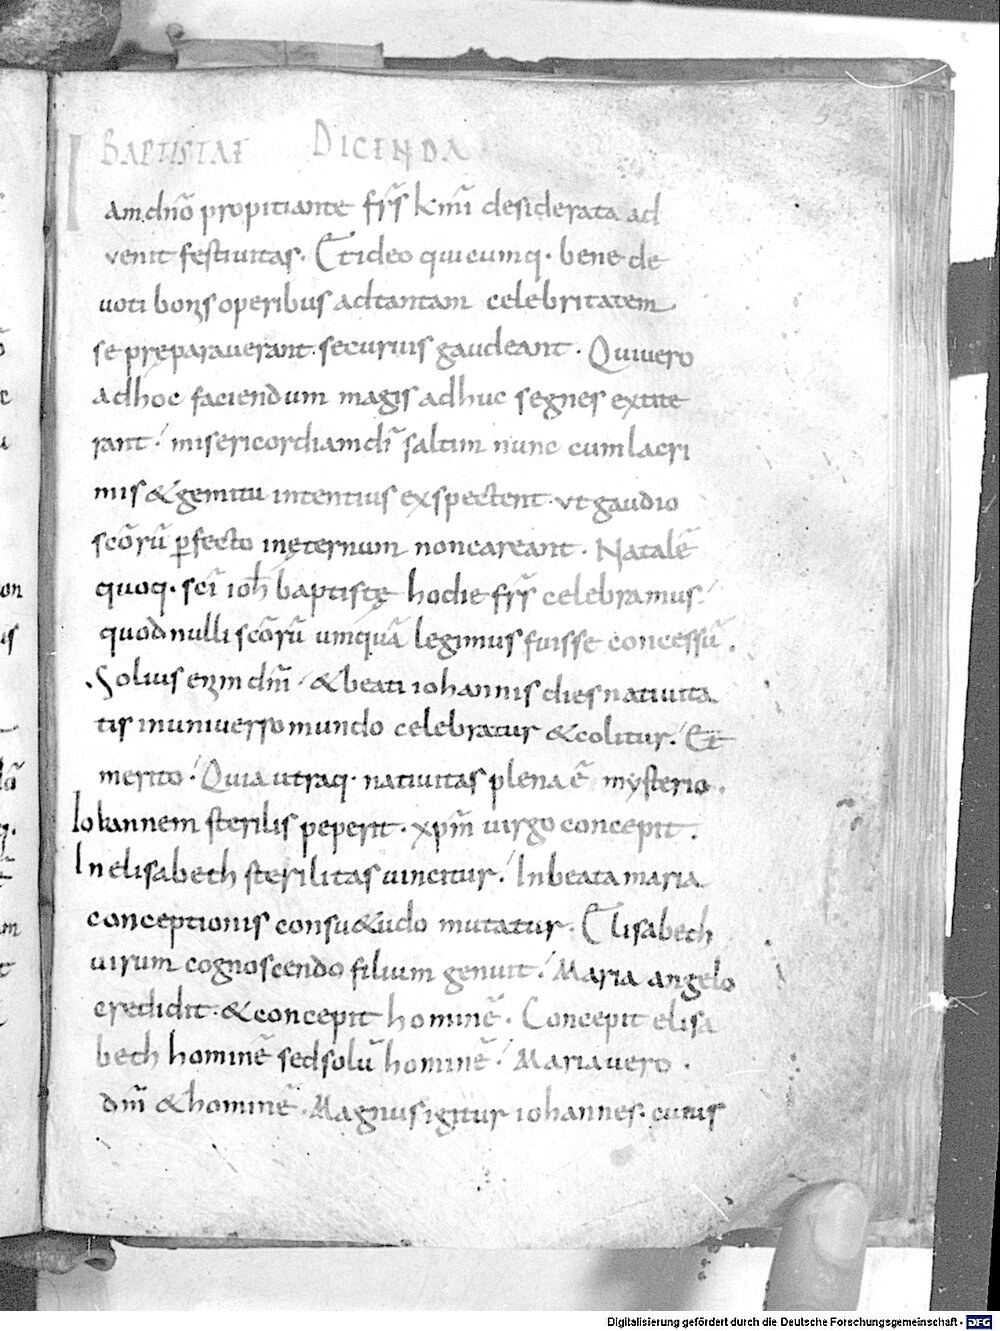 BAPTISTAE DICENDA
Iam dn̄o propitiante fr̄s km̄i desiderata ad
venit festiuitas. Et ideo quicumq· bene de
uoti bonis operibus ad tantam celebritatem
se preparauerant. securius gaudeant. Qui uero
ad hoc faciendum magis adhuc segnes extite
rant. misericordiam dī saltim nunc cum lacri
mis & gemitu intentius exspectent. ut gaudio
scōrū ꝑfecto in ęternum non careant. Natalē
quoq· scī ioħ baptistę hodie fr̄s celebramus.
quod nulli scōrū umquā legimus fuisse concessū.
Solius enim dn̄i & beati iohannis dies natiuita
tis in uniuerso mundo celebratur & colitur. Et
merito. Quia utraq· natiuitas plena ē mysterio.
Iohannem sterilis peperit. xp̄m uirgo concepit.
In elisabeth sterilitas uincitur. In beata maria
conceptionis consu&udo mutatur. Elisabeth
uirum cognoscendo filium genuit. Maria angelo
credidit & concepit hominē. Concepit elisa
beth hominē sed solū hominē. Maria uero.
dm̄ & hominē. Magnus igitur iohannes. cuius
Digitalisierung gefördert durch die Deutsche Forschungsgemeinschaft - DFG